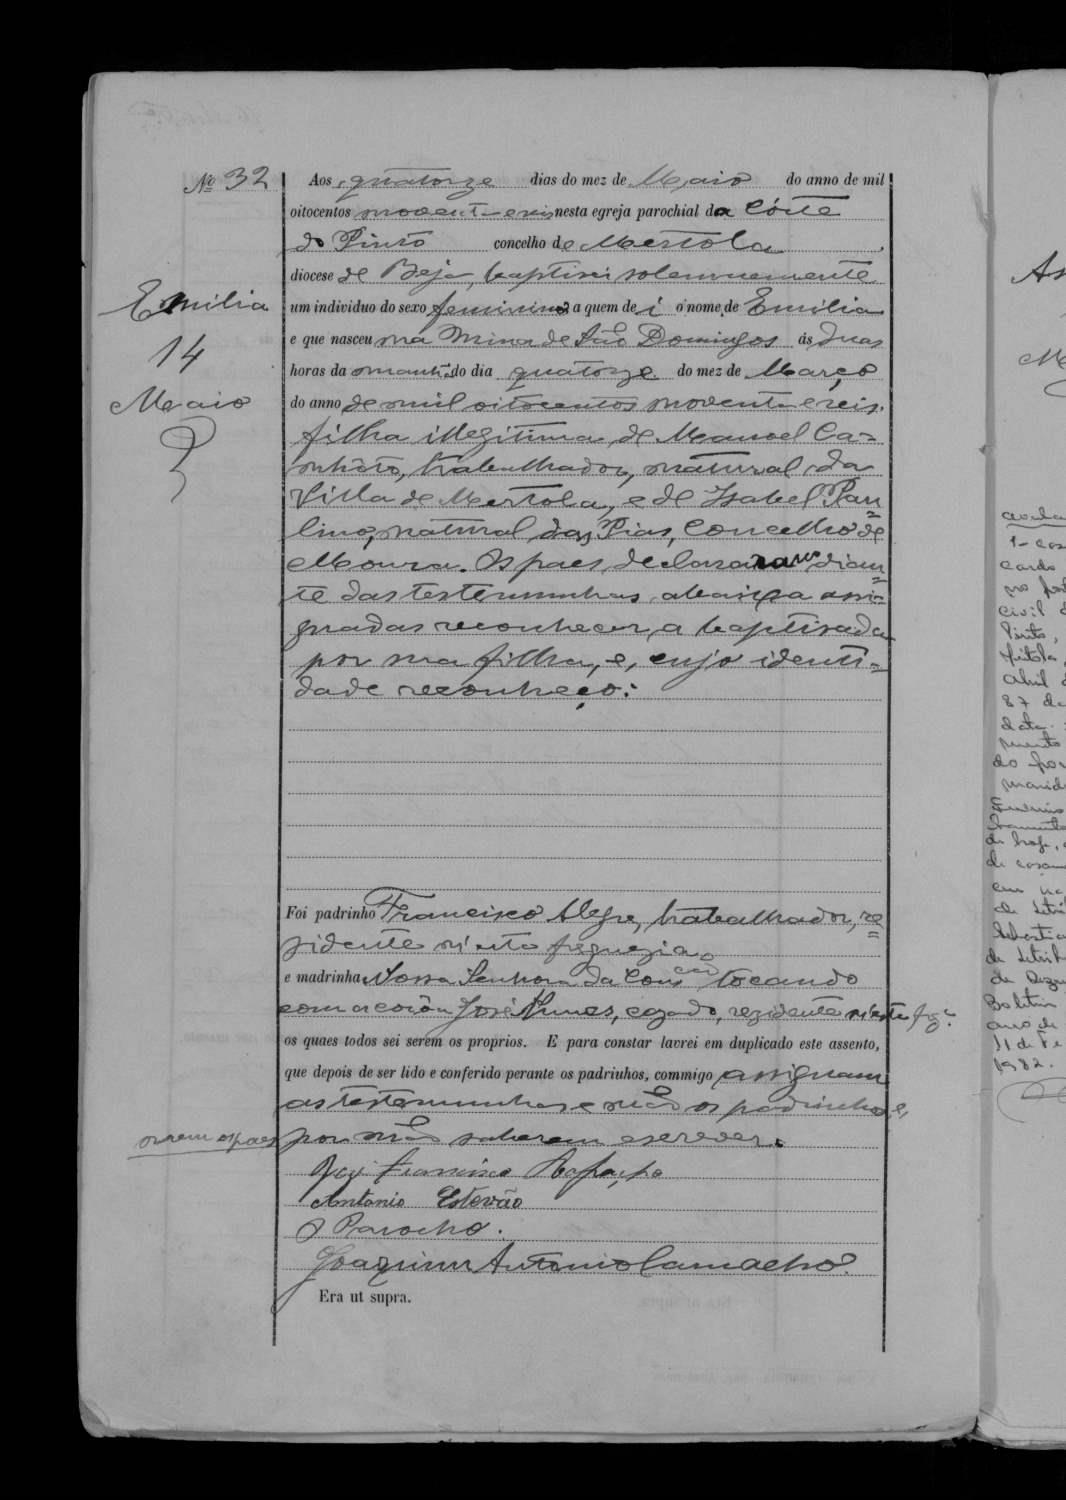 Nº 32
Aos quatorze dias do mez de Maio do anno de mil
oitocentos noventa e seis nesta egreja parochial da Côrte
do Pinto concelho de Mertola,
diocese de Beja, baptisei solemnemente
um individuo do sexo feminino a quem dei o nome de Emilia
e que nasceu na Mina de São Domingos ás duas
horas da manhã do dia quatorze do mez de Março
do anno de mil oitocentos noventa e seis.
filha illegitima de Manoel Ca=
nhôto, trabalhador, natural da
Villa de Mertola, e de Isabel Pau=
lino, natural das Pias, Concelho de
Moura. Os paes declararam dian=
te das testemunhas abaixo assi=
gnadas reconhecer a baptisada
por sua filha, e, cujo identi=
dade reconheço:
Emilia
14
Maio
Foi padrinho Francisco Alegre, trabalhador, re=
zidente n'esta freguezia
e madrinha Nossa Senhora da Conceicão tocando
com a corôa José Nunes, cazado, rezidente n'esta frgª.
os quaes todos sei serem os proprios. E para constar lavrei em duplicado este assento,
que depois de ser lido e conferido perante os padrinhos, commigo assignam
as testemunhas e não os padrinhos, e,
nem os paes por não saberem escrever.
Francisco
Antonio Estevão
O Parocho.
Joaquim Antonio Camacho.
Era ut supra.
As
1-
civil
Pinto,
Abril
87 de
data.
do
de
Boletim
11 de
1982.